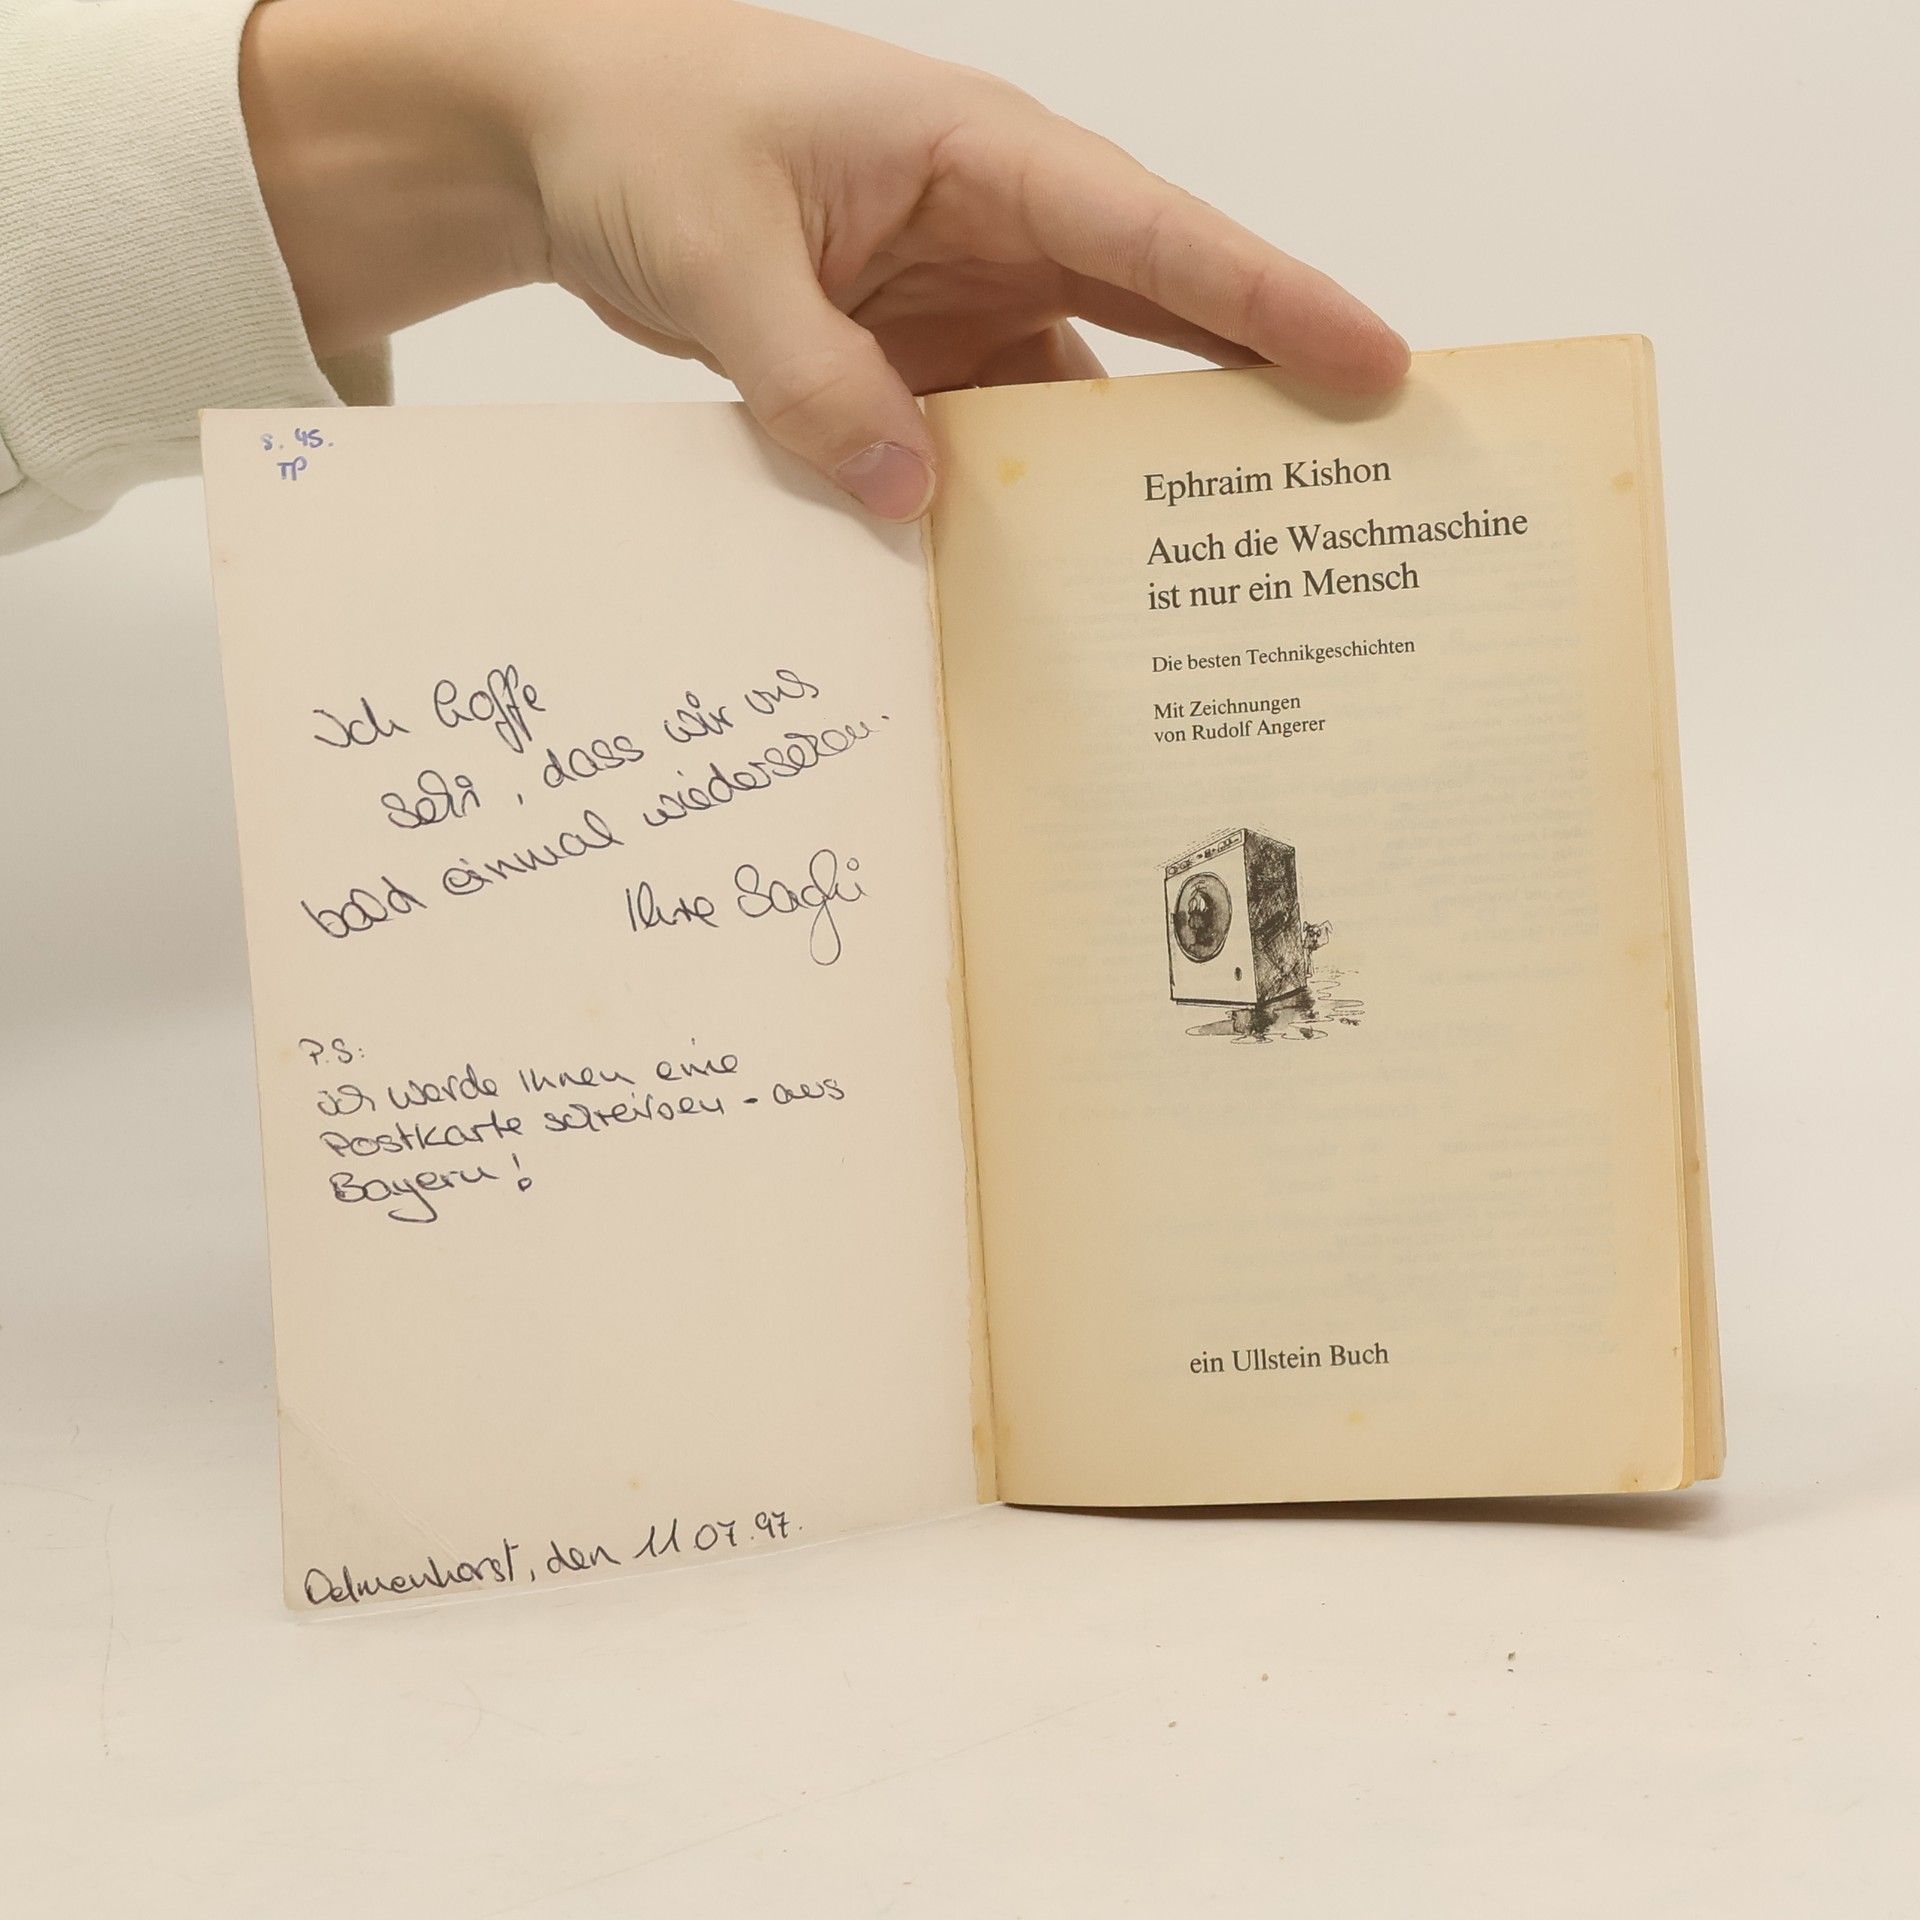 s. 45.
TP
Ich hoffe
sehr, dass wir uns
bald einmal wiedersehen.
Ihre
P.S.:
ich werde Ihnen eine
Postkarte schreiben - aus
Bayern!
Delmenhorst, den 11 07.97.
Ephraim Kishon
Auch die Waschmaschine
ist nur ein Mensch
Die besten Technikgeschichten
Mit Zeichnungen
von Rudolf Angerer
ein Ullstein Buch